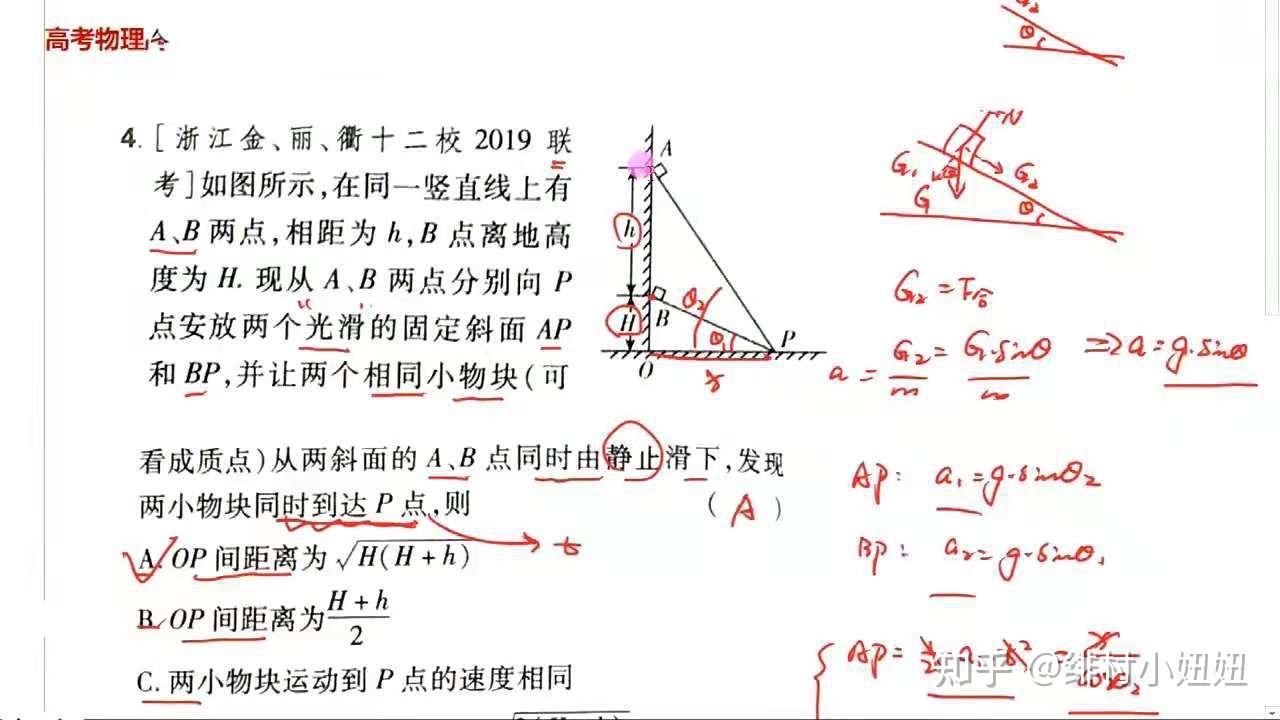 高考物理
4. [浙江金、丽、衢十二校 2019 联
考]如图所示,在同一竖直线上有
A、B 两点,相距为 h,B 点离地高
度为 H. 现从 A、B 两点分别向 P
点安放两个光滑的固定斜面 AP
和 BP,并让两个相同小物块(可
看成质点)从两斜面的 A、B 点同时由静止滑下,发现
两小物块同时到达 P 点,则 ( A )
A. OP 间距离为 √H(H+h)
t
B. OP 间距离为 (H+h)/2
C. 两小物块运动到 P 点的速度相同
A
h
H
B
θ₂
θ₁
P
O
x
θ
N
G₁
G₂
θ
G
G₂ = F合
a = G₂/m = G·sinθ/m ⇒ a = g·sinθ
AP: a₁ = g·sinθ₂
BP: a₂ = g·sinθ₁
AP =
知乎 @绯村小妞妞